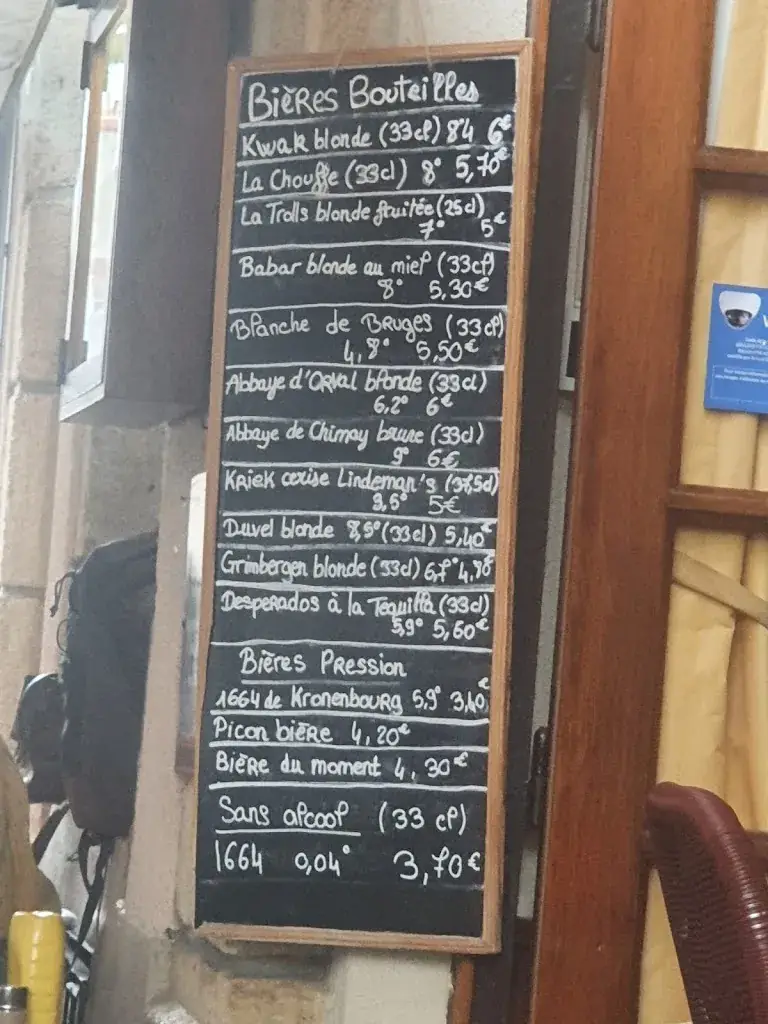 Bières Bouteilles
Kwak blonde (33cl) 8°4 6€
La Chouffe (33cl) 8° 5,70€
La Trolls blonde fruitée (25cl)
7° 5€
Babar blonde au miel (33cl)
8° 5,30€
Blanche de Bruges (33cl)
4,8° 5,50€
Abbaye d'Orval blonde (33cl)
6,2° 6€
Abbaye de Chimay brune (33cl)
9° 6€
Kriek cerise Lindeman's (37,5cl)
3,5° 5€
Duvel blonde 8,5° (33cl) 5,40€
Grimbergen blonde (33cl) 6,7° 4,90
Desperados à la Tequilla (33cl)
5,9° 5,60€
Bières Pression
1664 de Kronenbourg 5,9° 3,40€
Picon bière 4,20€
Bière du moment 4,30€
Sans alcool (33 cl)
1664 0,04° 3,70€